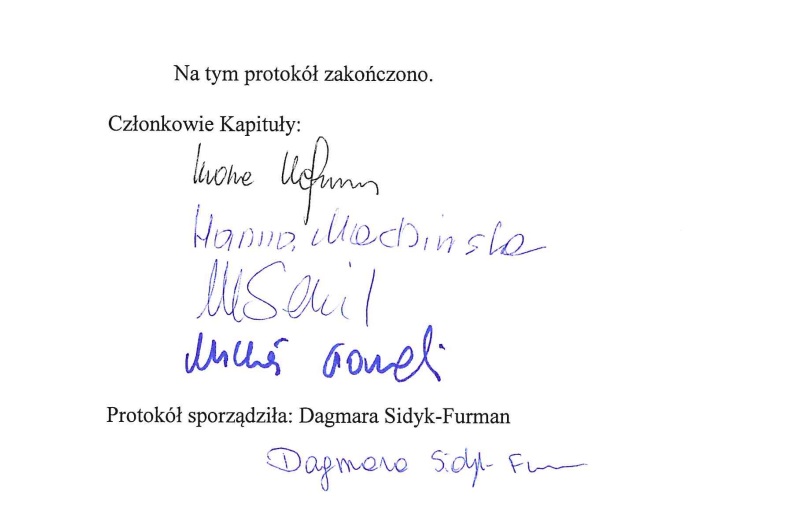 Na tym protokół zakończono.
Członkowie Kapituły:
Iwona Hofman
Hanna Machińska
Protokół sporządziła: Dagmara Sidyk-Furman
Dagmara Sidyk-Furman